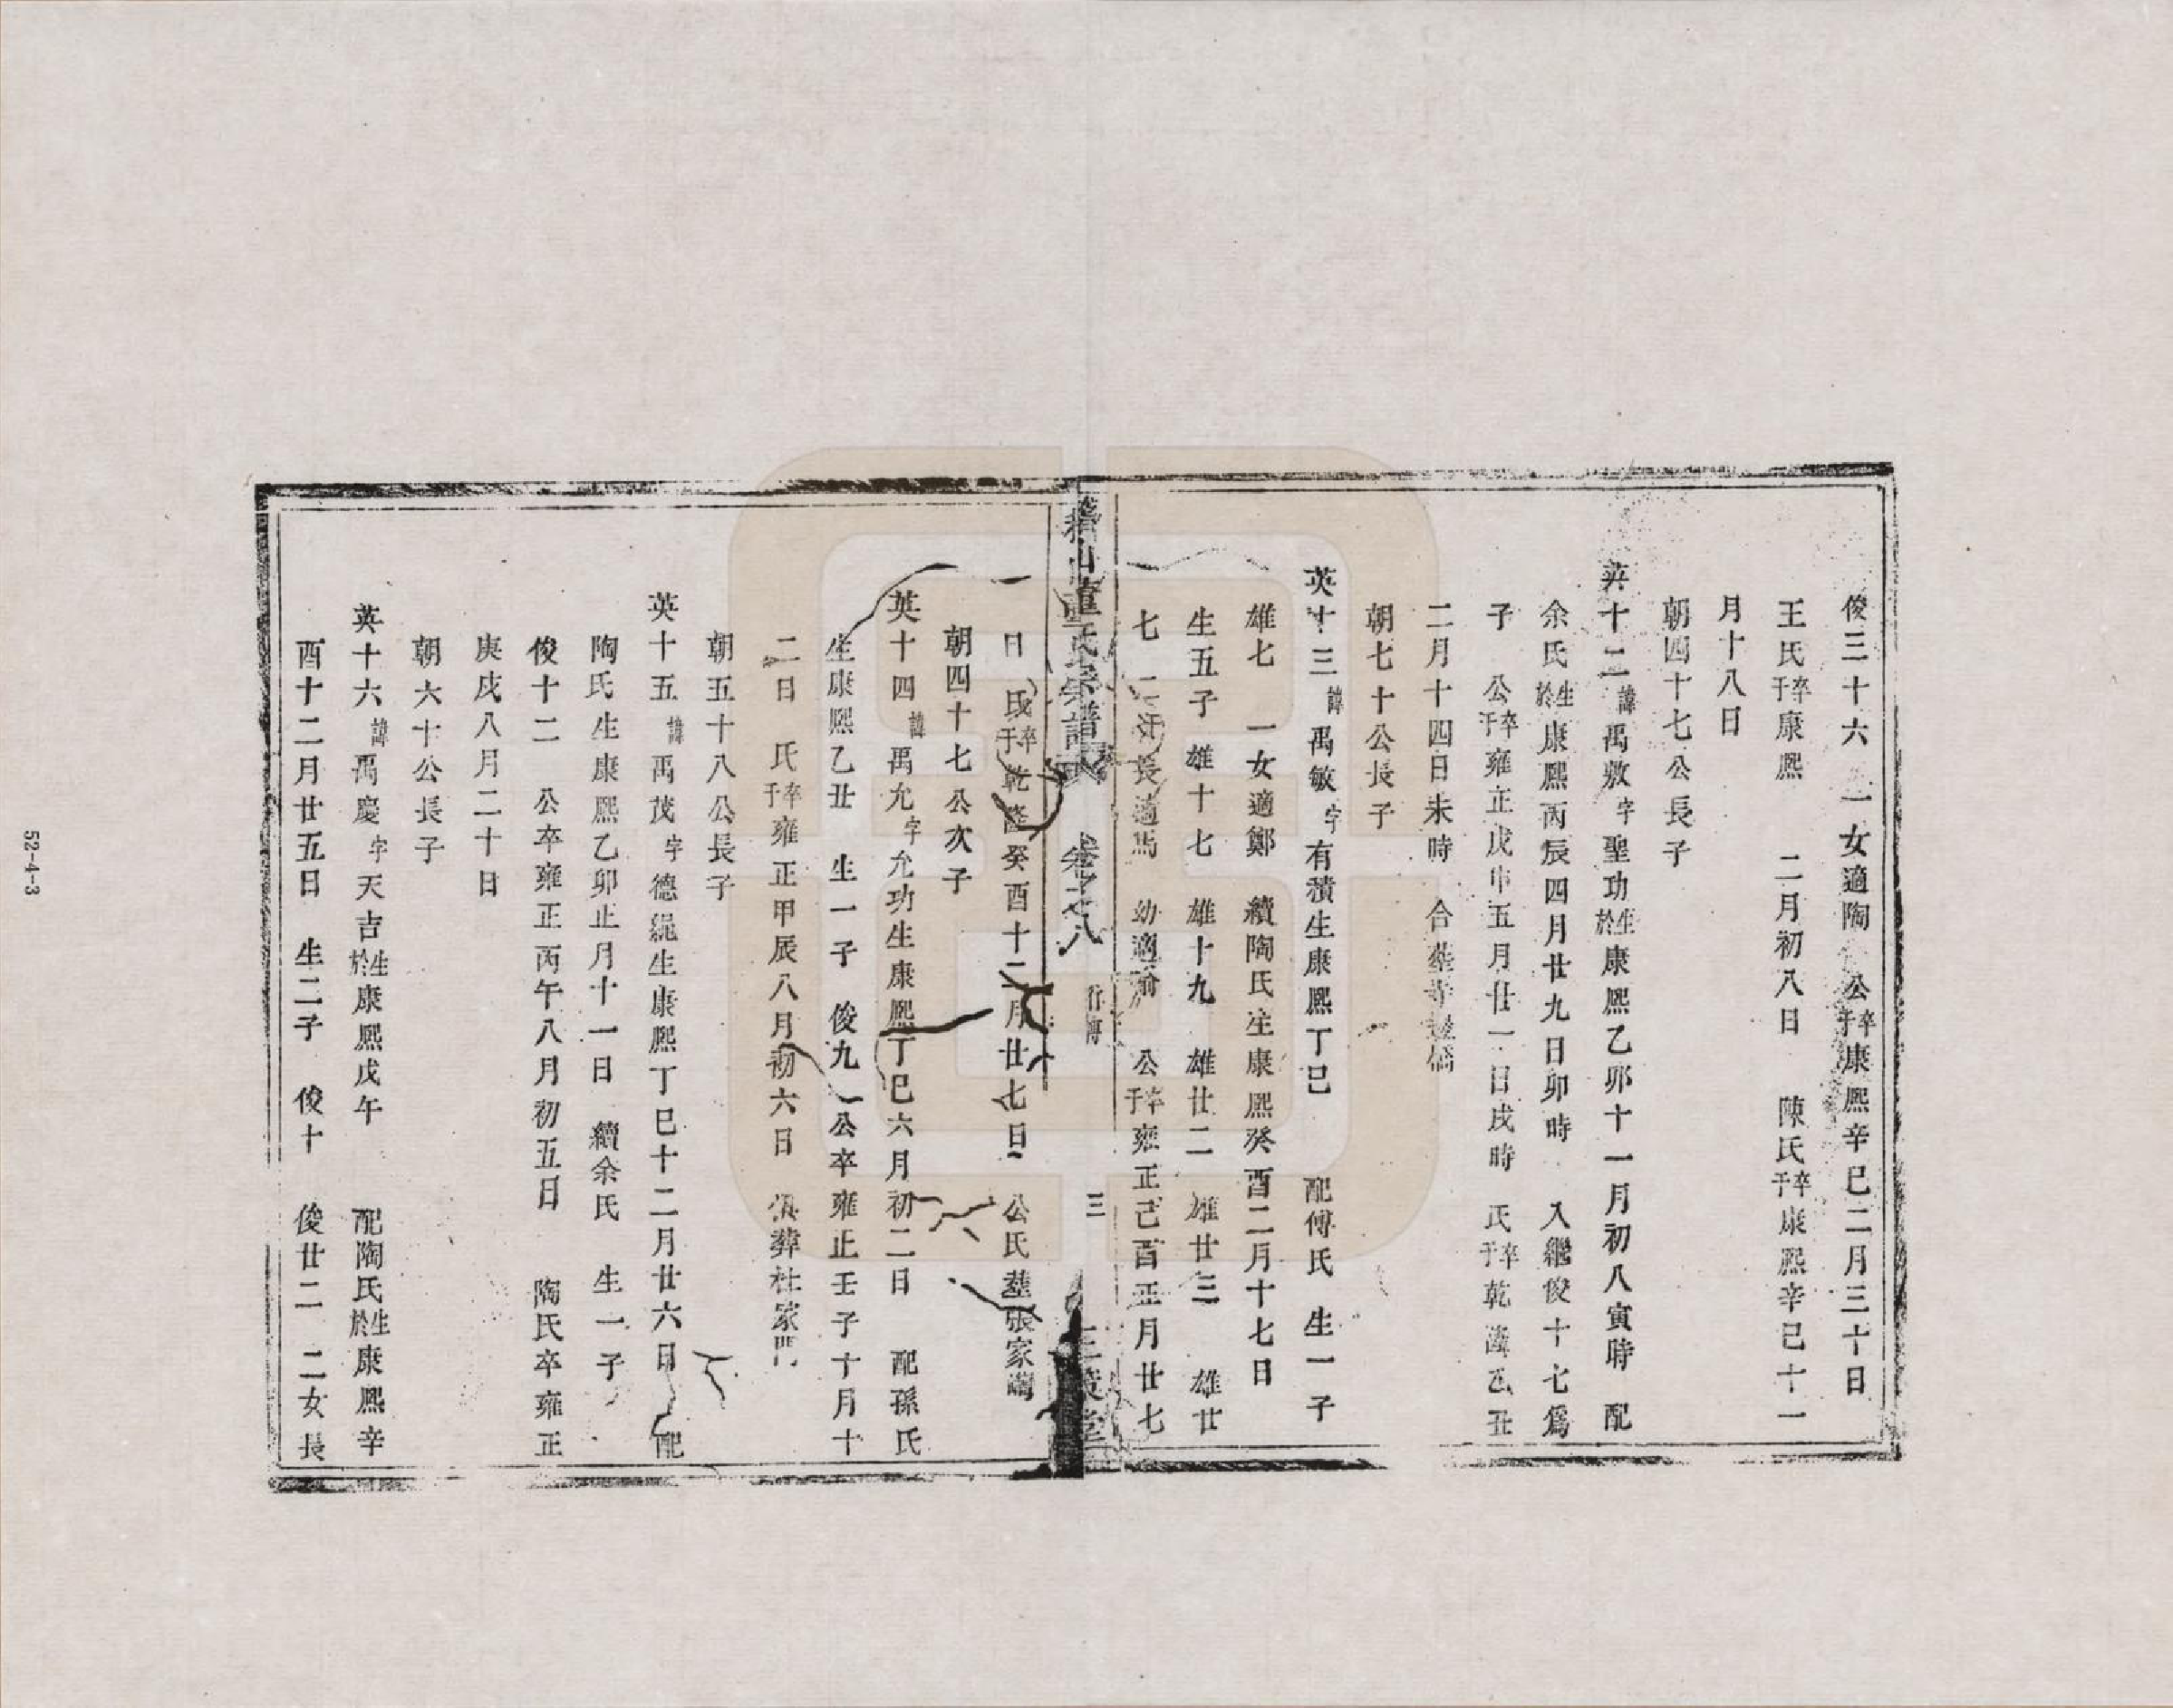 俊三十六 一女適陶 公卒于康熙辛巳二月三十日
王氏卒于康熙 二月初八日 陳氏卒于康熙辛巳十一
月十八日
朝四十七公長子
英十二諱禹敷字聖功生於康熙乙卯十一月初八寅時 配
余氏生於康熙丙辰四月廿九日卯時 入繼俊十七爲
子 公卒于雍正戊申五月廿一日戌時 氏卒于乾隆乙丑
二月十四日未時 合墓
朝七十公長子
英十三諱禹敏字有積生康熙丁巳 配傅氏 生一子
雄七 一女適鄭 續陶氏生康熙癸酉二月十七日
生五子 雄十七 雄十九 雄廿二 雄廿三 雄廿
七 二女長適馬 幼適俞 公卒于雍正己酉正月廿七
山董氏宗譜 卷之八 行傳 三
日 氏卒于乾隆癸酉十二月廿七日 公氏墓張家
朝四十七公次子
英十四諱禹允字允功生康熙丁巳六月初二日 配孫氏
生康熙乙丑 生一子 俊九 公卒雍正壬子十月十
二日 氏卒于雍正甲辰八月初六日 俱葬杜家門
朝五十八公長子
英十五諱禹茂字德繩生康熙丁巳十二月廿六日 配
陶氏生康熙乙卯正月十一日 續余氏 生一子
俊十二 公卒雍正丙午八月初五日 陶氏卒雍正
庚戌八月二十日
朝六十公長子
英十六諱禹慶字天吉生於康熙戊午 配陶氏生於康熙辛
酉十二月廿五日 生二子 俊十 俊廿二 二女長
52-4-3